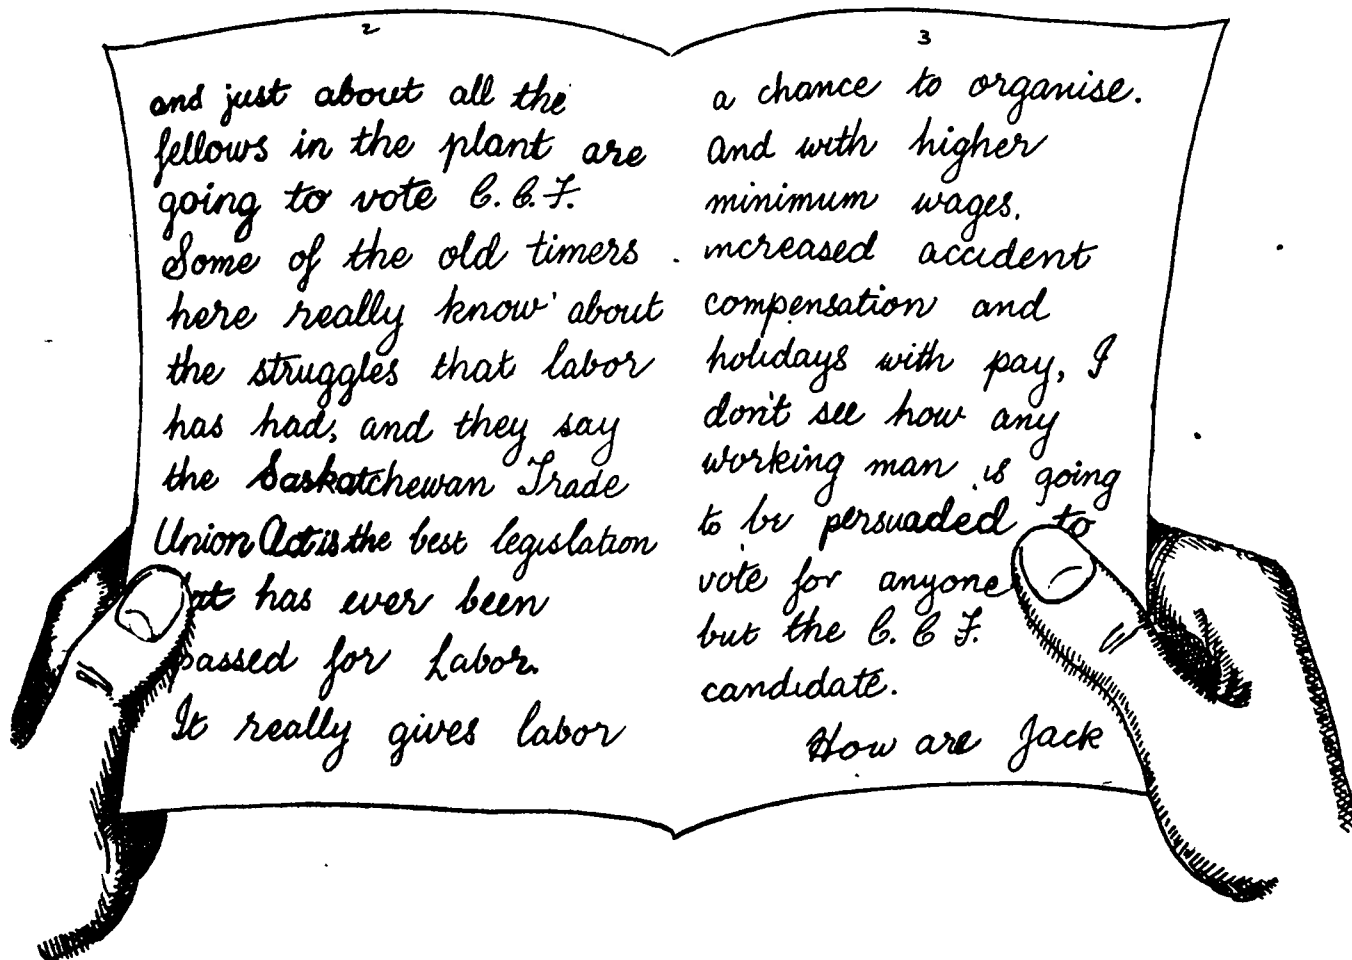 2
and just about all the
fellows in the plant are
going to vote C.C.F.
Some of the old timers
here really know about
the struggles that labor
has had, and they say
the Saskatchewan Trade
Union Act is the best legislation
at has ever been
passed for Labor.
It really gives labor
3
a chance to organise.
And with higher
minimum wages,
increased accident
compensation and
holidays with pay, I
don't see how any
working man is going
to be persuaded to
vote for anyone
but the C.C.F.
candidate.
How are Jack